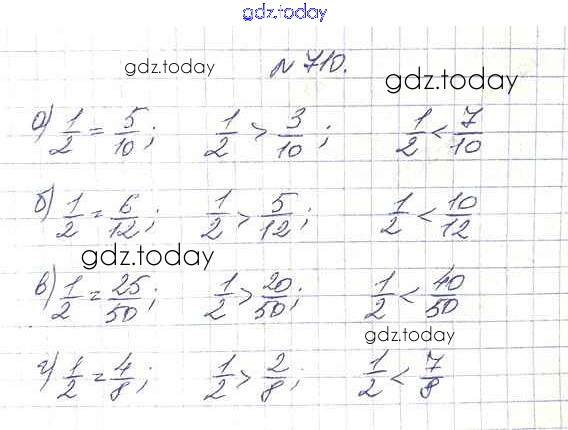 gdz.today
gdz.today № 710. gdz.today
а) 1/2 = 5/10; 1/2 > 3/10; 1/2 < 7/10
б) 1/2 = 6/12; 1/2 > 5/12; 1/2 < 10/12
gdz.today
в) 1/2 = 25/50; 1/2 > 20/50; 1/2 < 40/50
gdz.today
г) 1/2 = 4/8; 1/2 > 2/8; 1/2 < 7/8